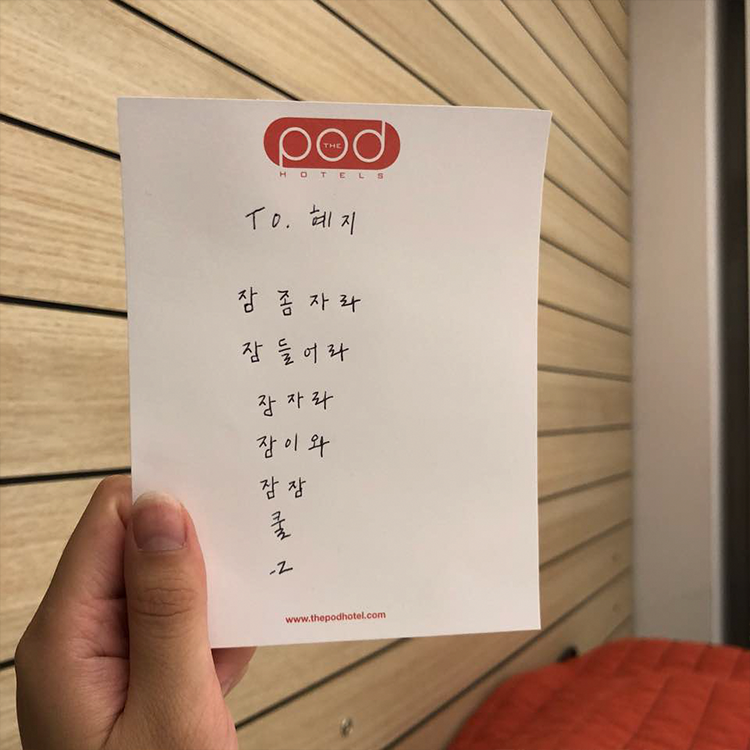 pod
THE
HOTELS
TO. 혜지
잠 좀 자라
잠 들어라
잠 자라
잠이 와
잠 잠
쿨
.z
www.thepodhotel.com